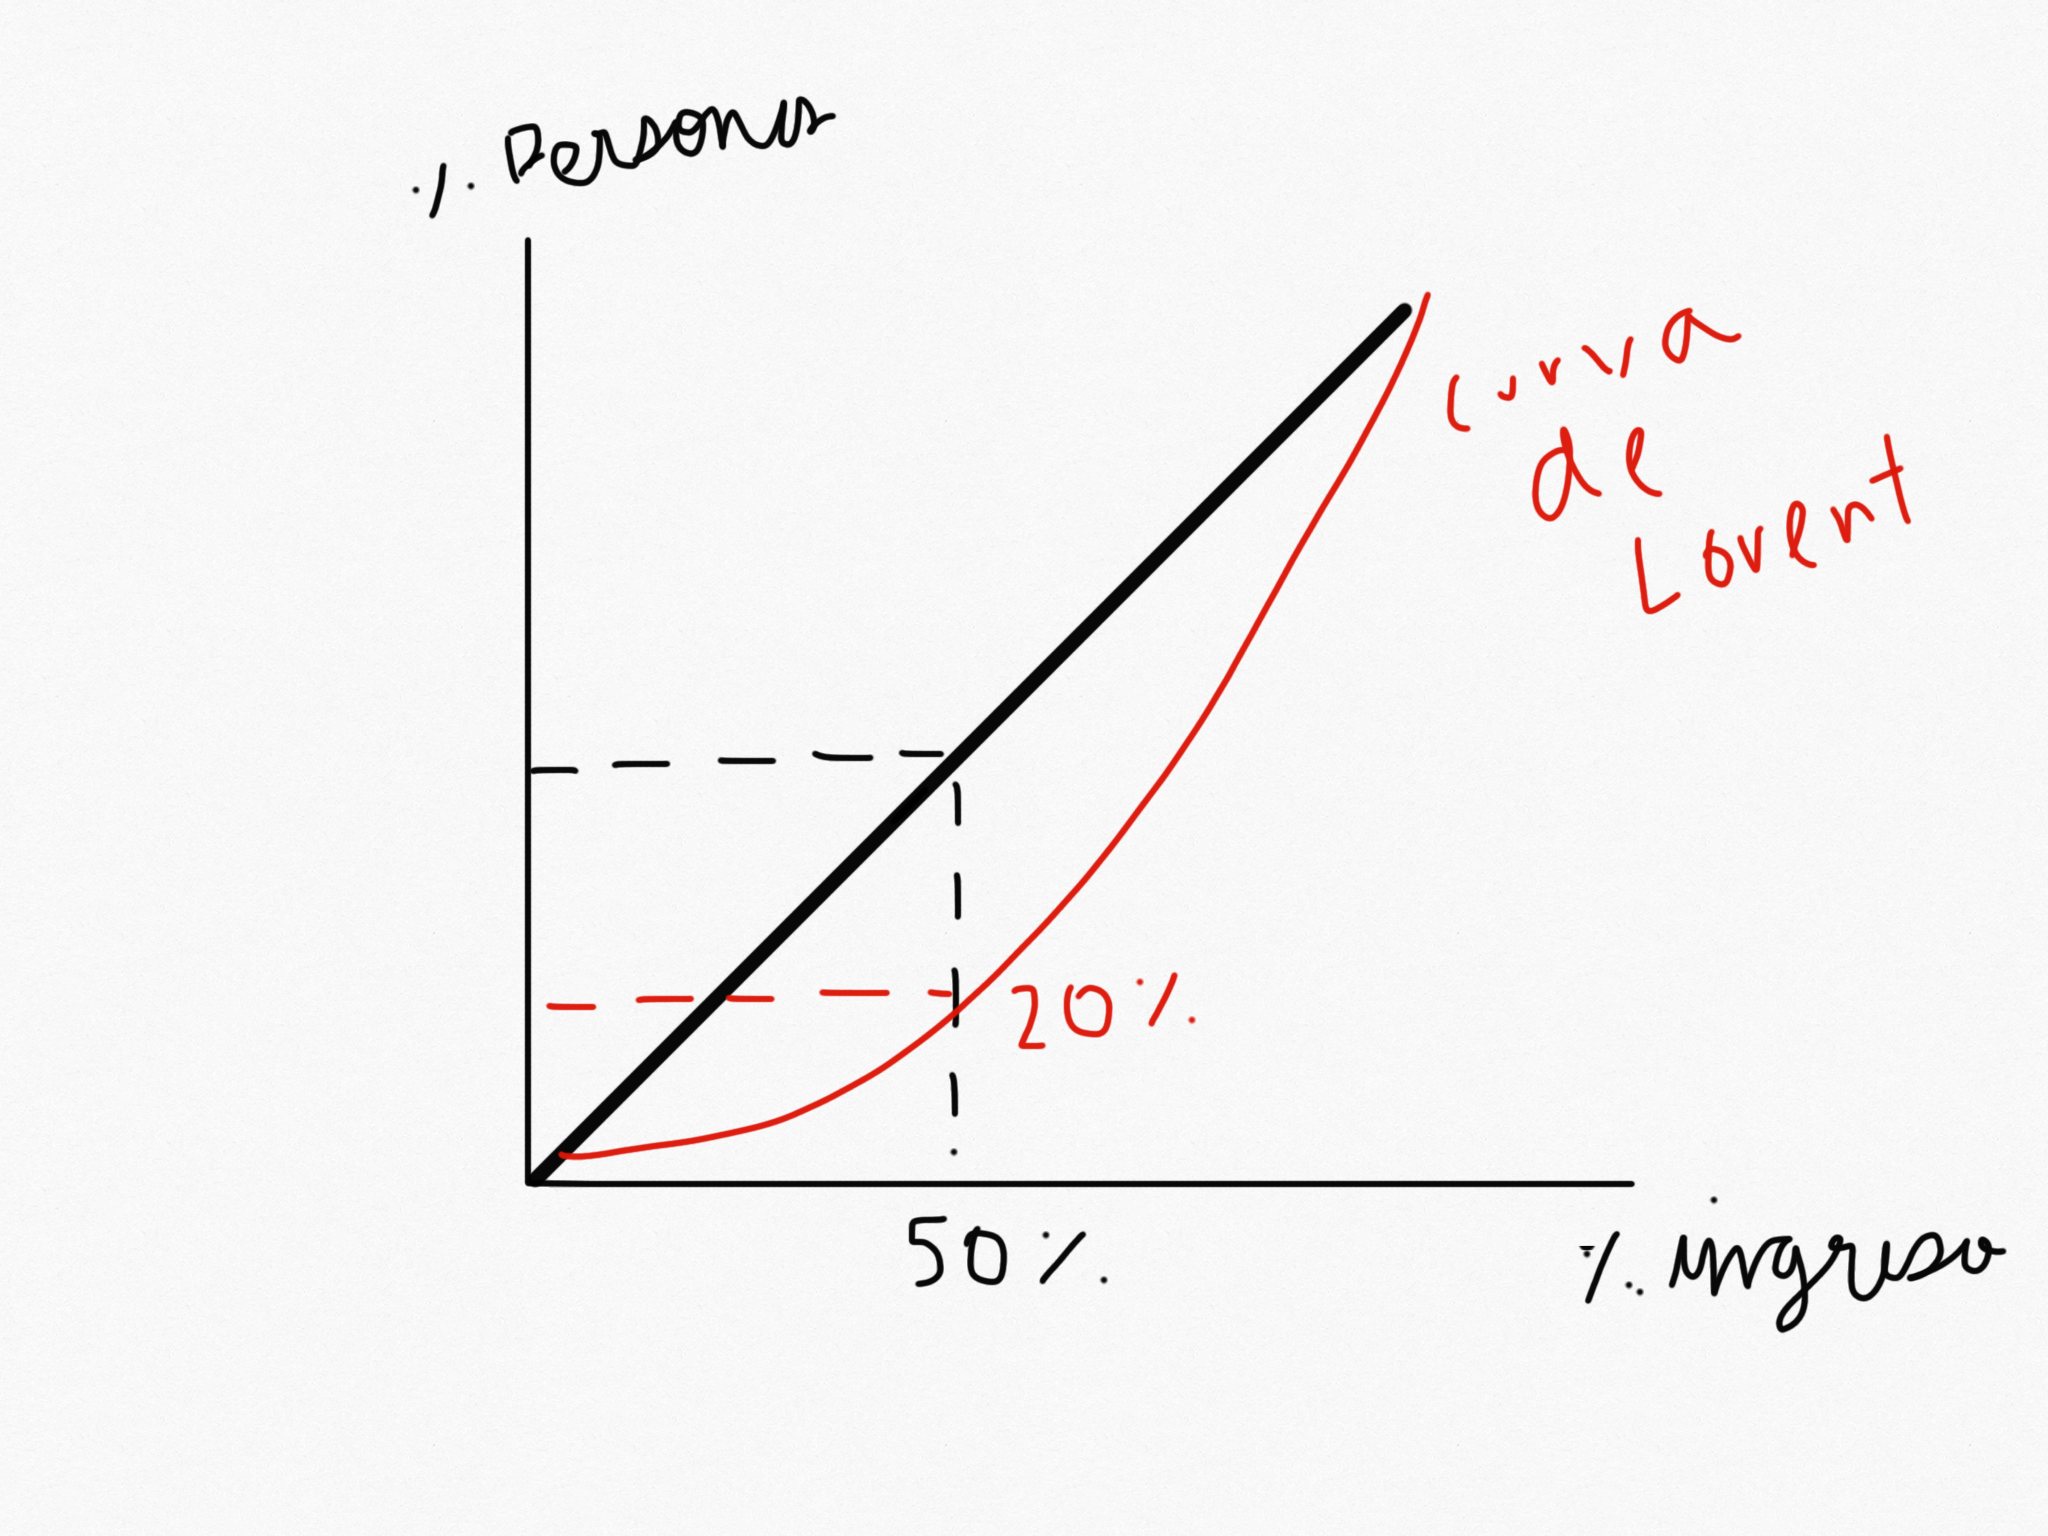 % Personas
Curva
de
Lorent
20%
50%
% ingreso